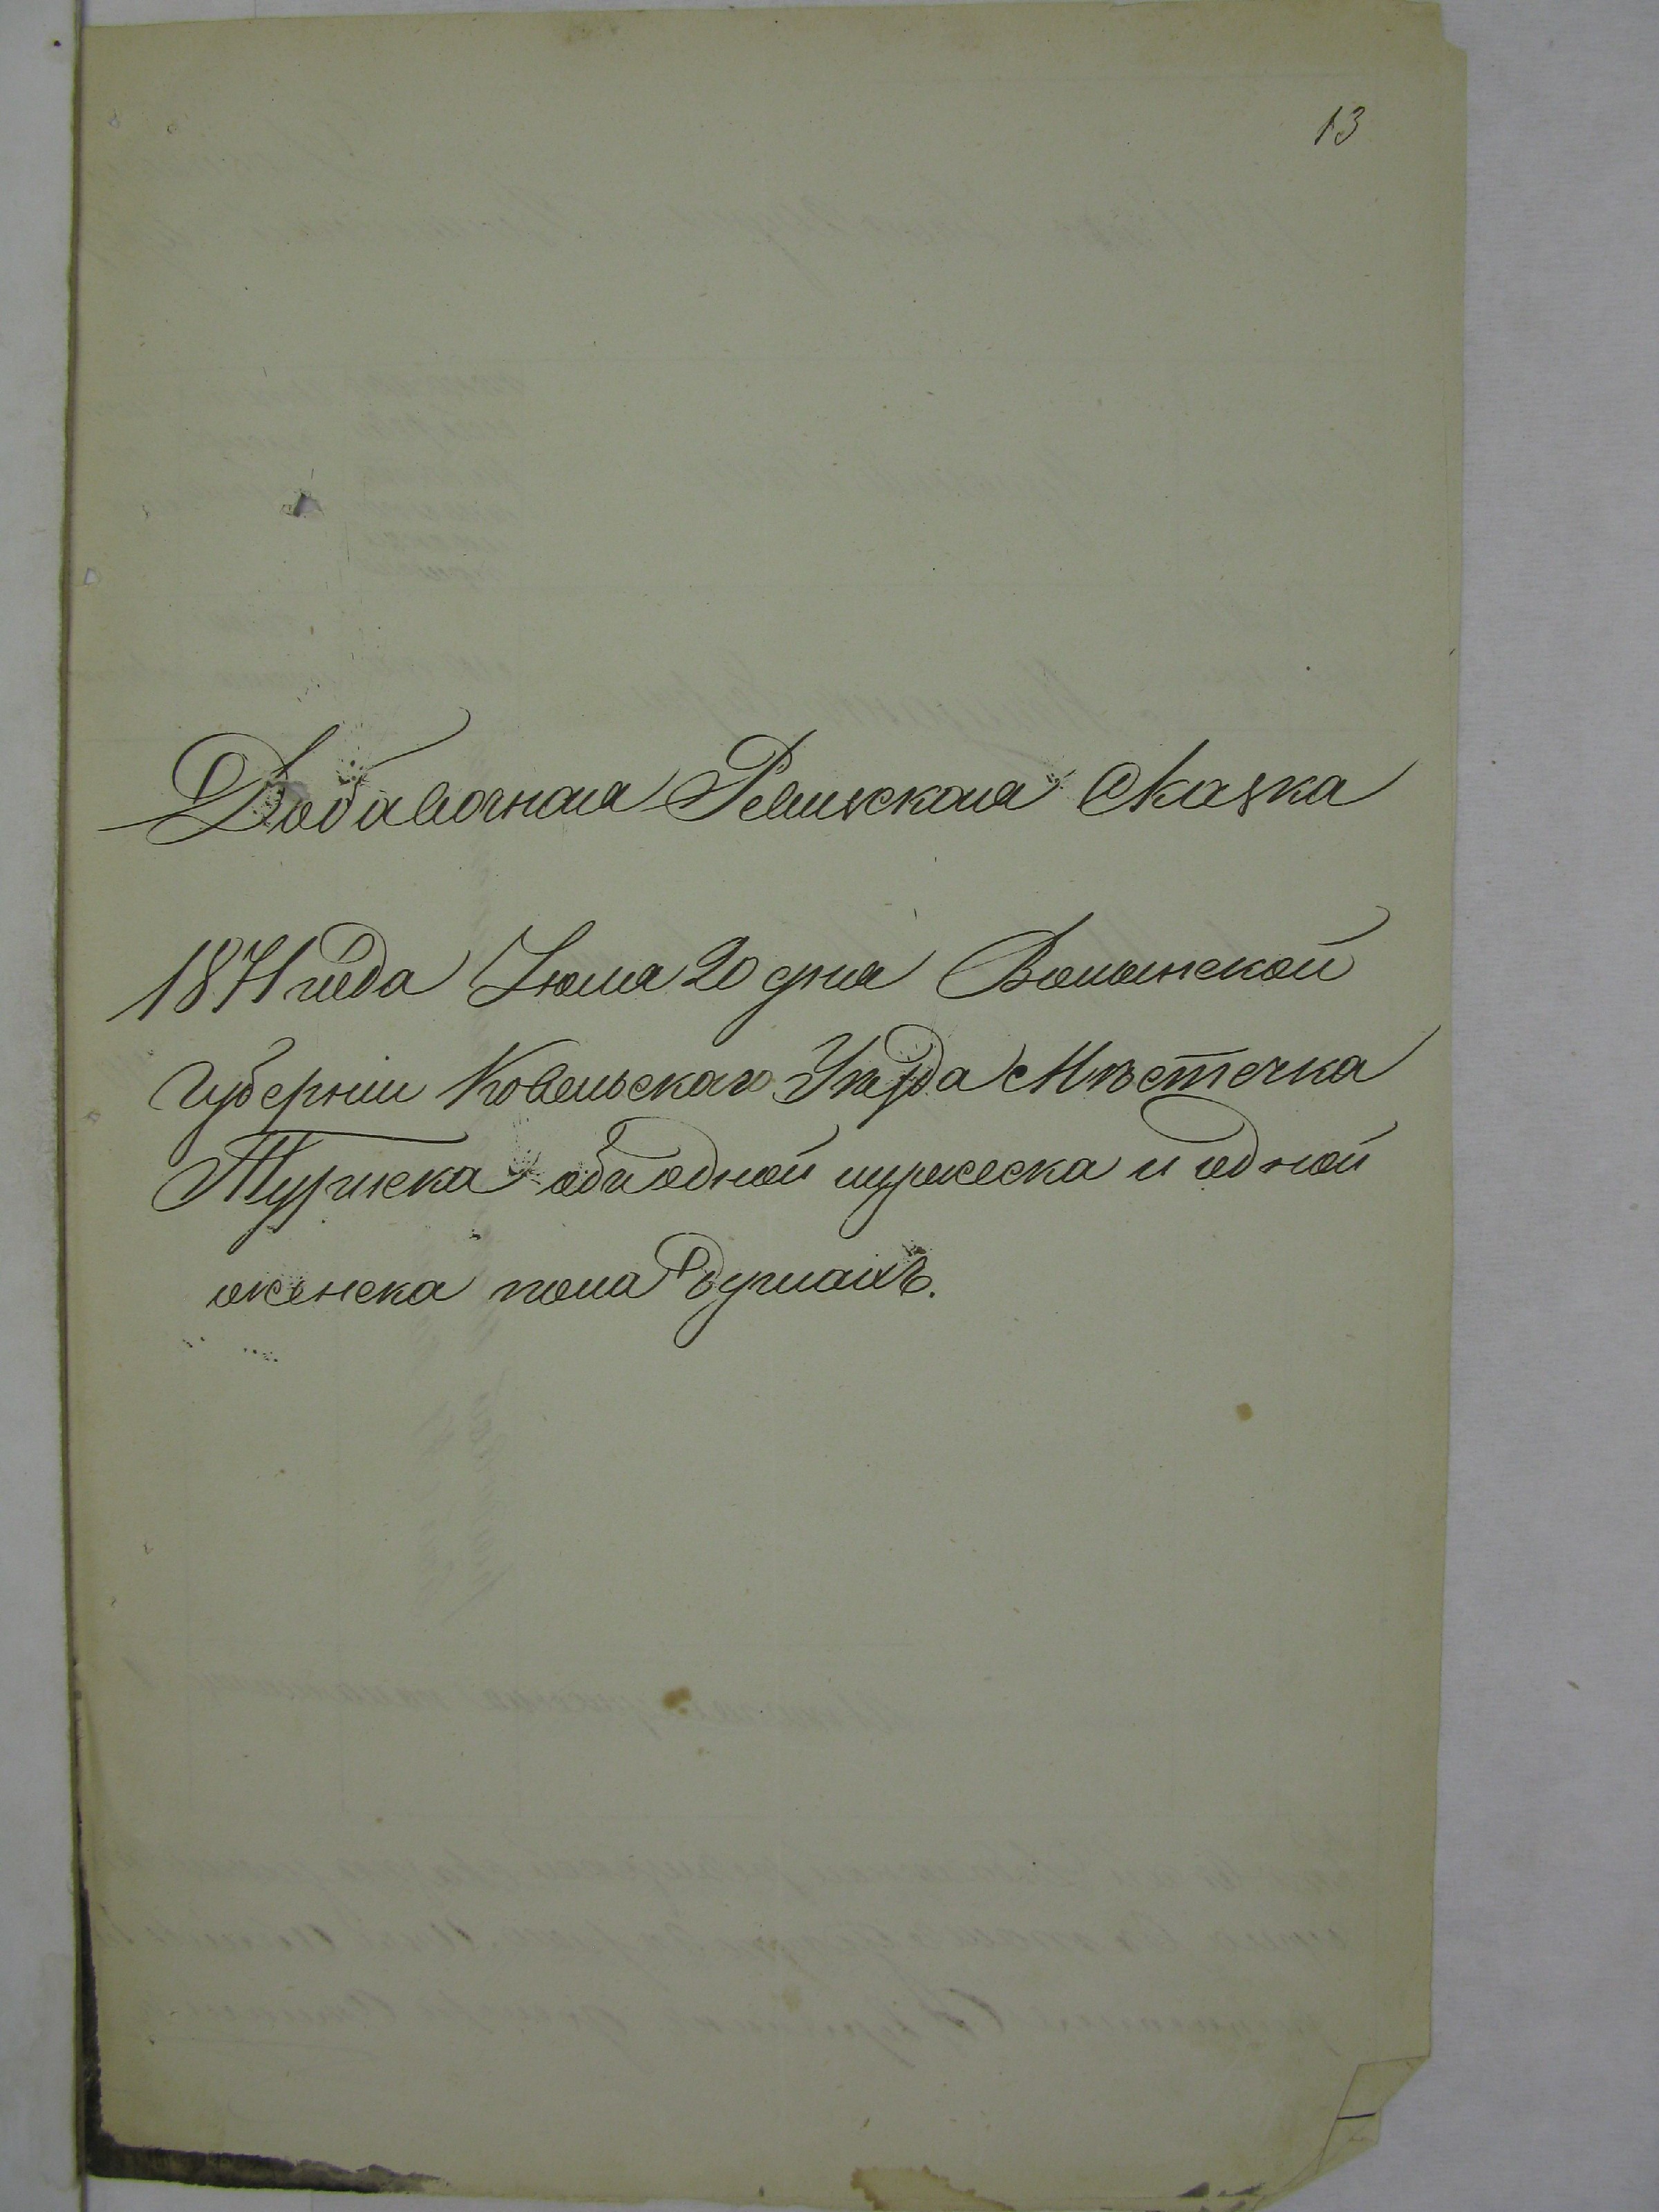 13
Добавочная Ревизская Сказка
1871 года Іюля 20 дня Волынской
Губерніи Ковельскаго Уѣзда Мѣстечка
Турiиска объ одной мужеска и одной
женска пола душахъ.